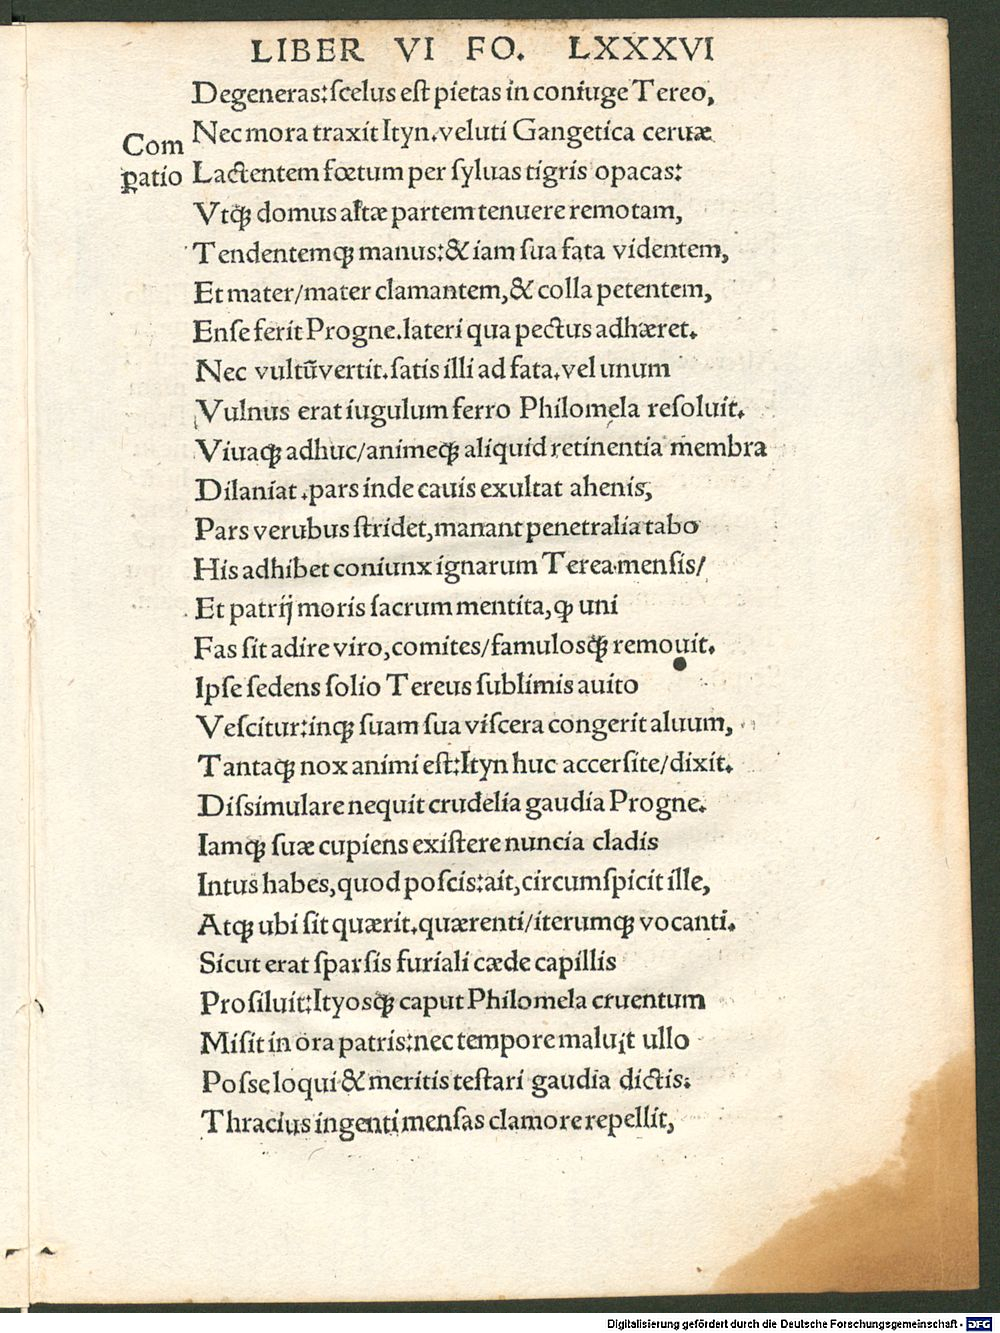 LIBER VI FO. LXXXVI
Degeneras:ſcelus eſt pietas in coniuge Tereo,
Nec mora traxit Ityn.veluti Gangetica ceruæ
Com
ꝑatio
Lactentem fœtum per ſyluas tigris opacas:
Vtqꝫ domus altæ partem tenuere remotam,
Tendentemqꝫ manus:& iam ſua fata videntem,
Et mater/mater clamantem,& colla petentem,
Enſe ferit Progne.lateri qua pectus adhæret.
Nec vultũ vertit.ſatis illi ad fata.vel unum
Vulnus erat iugulum ferro Philomela reſoluit.
Viuaqꝫ adhuc/animęqꝫ aliquid retinentia membra
Dilaniat.pars inde cauis exultat ahenis,
Pars verubus ſtridet,manant penetralia tabo
His adhibet coniunx ignarum Terea menſis/
Et patrij moris ſacrum mentita,ꝙ uni
Fas ſit adire viro,comites/famuloſqꝫ remouit.
Ipſe ſedens ſolio Tereus ſublimis auito
Veſcitur:inqꝫ ſuam ſua viſcera congerit aluum,
Tantaqꝫ nox animi eſt:Ityn huc accerſite/dixit.
Diſsimulare nequit crudelia gaudia Progne.
Iamqꝫ ſuæ cupiens exiſtere nuncia cladis
Intus habes,quod poſcis:ait,circumſpicit ille,
Atqꝫ ubi ſit quærit.quærenti/iterumqꝫ vocanti.
Sicut erat ſparſis furiali cæde capillis
Proſiluit:Ityoſqꝫ caput Philomela cruentum
Miſit in ora patris:nec tempore maluit ullo
Poſse loqui & meritis teſtari gaudia dictis.
Thracius ingenti menſas clamore repellit,
Digitalisierung gefördert durch die Deutsche Forschungsgemeinschaft - DFG